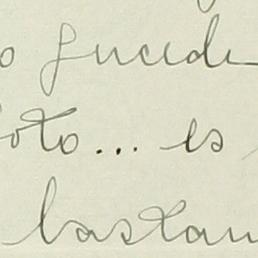 o sucedi
foto... es
bastan